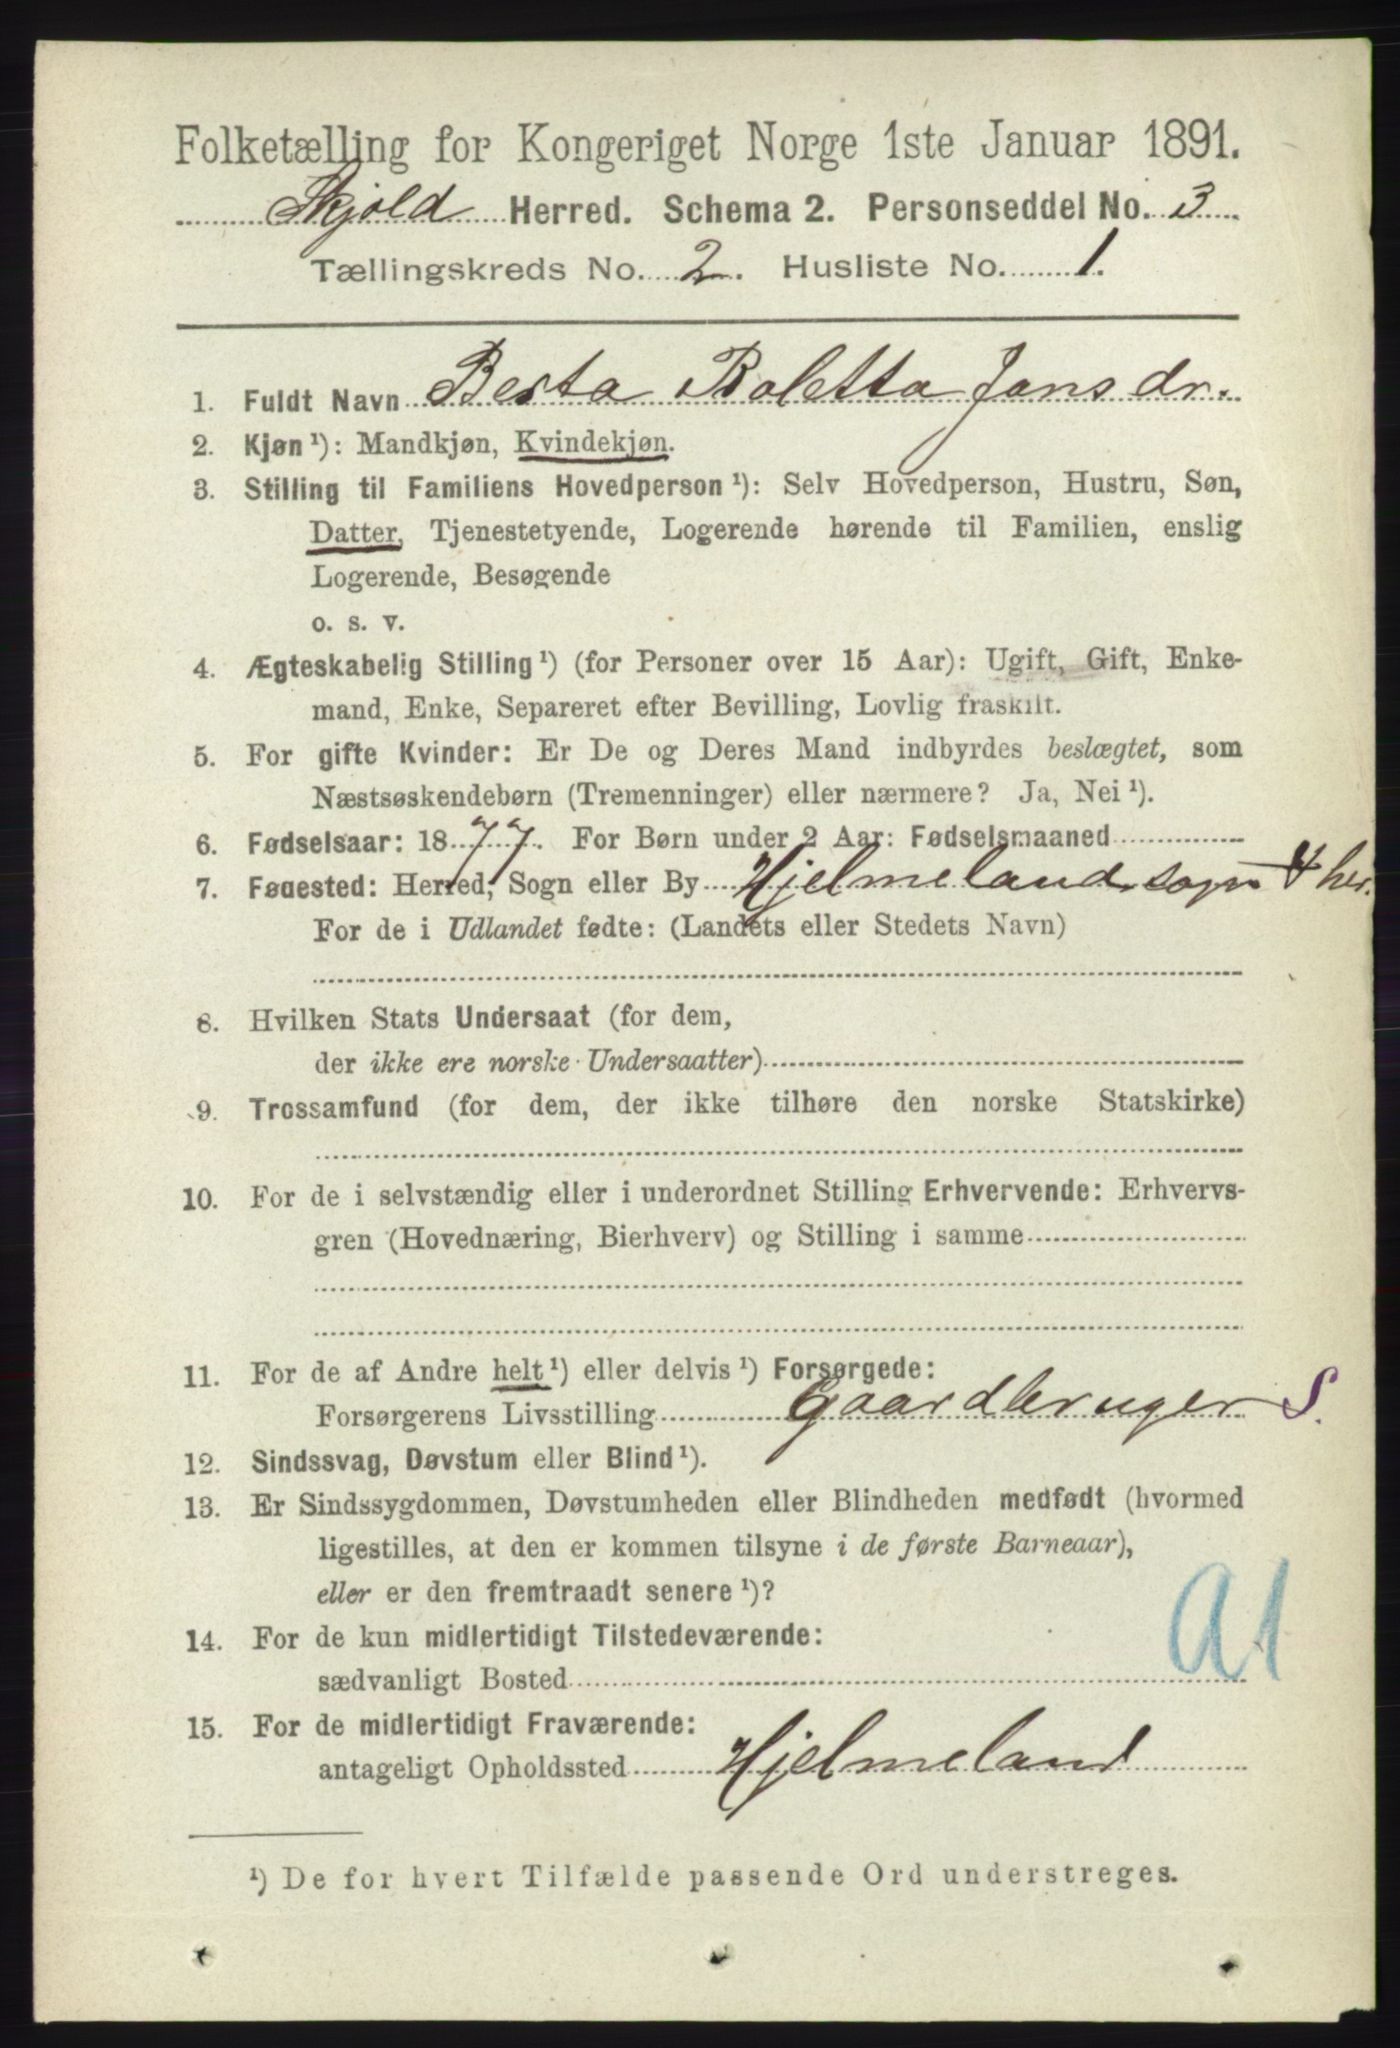 Folketælling for Kongeriget Norge 1ste Januar 1891.
Skjold Herred. Schema 2. Personseddel No. 3
Tællingskreds No. 2. Husliste No. 1.
1. Fuldt Navn Berta Boletta Jansdr.
2. Kjøn ¹): Mandkjøn, Kvindekjøn.
3. Stilling til Familiens Hovedperson ¹): Selv Hovedperson, Hustru, Søn,
Datter, Tjenestetyende, Logerende hørende til Familien, enslig
Logerende, Besøgende
o. s. v.
4. Ægteskabelig Stilling ¹) (for Personer over 15 Aar): Ugift, Gift, Enke-
mand, Enke, Separeret efter Bevilling, Lovlig fraskilt.
5. For gifte Kvinder: Er De og Deres Mand indbyrdes beslægtet, som
Næstsøskendebørn (Tremenninger) eller nærmere? Ja, Nei ¹).
6. Fødselsaar: 1877. For Børn under 2 Aar: Fødselsmaaned
7. Fødested: Herred, Sogn eller By Hjelmeland sogn & her.
For de i Udlandet fødte: (Landets eller Stedets Navn)
8. Hvilken Stats Undersaat (for dem,
der ikke ere norske Undersaatter)
9. Trossamfund (for dem, der ikke tilhøre den norske Statskirke)
10. For de i selvstændig eller i underordnet Stilling Erhvervende: Erhvervs-
gren (Hovednæring, Bierhverv) og Stilling i samme
11. For de af Andre helt ¹) eller delvis ¹) Forsørgede:
Forsørgerens Livsstilling Gaardbruger S.
12. Sindssvag, Døvstum eller Blind ¹).
13. Er Sindssygdommen, Døvstumheden eller Blindheden medfødt (hvormed
ligestilles, at den er kommen tilsyne i de første Barneaar),
eller er den fremtraadt senere ¹)?
14. For de kun midlertidigt Tilstedeværende:
sædvanligt Bosted a1
15. For de midlertidigt Fraværende:
antageligt Opholdssted Hjelmeland
¹) De for hvert Tilfælde passende Ord understreges.